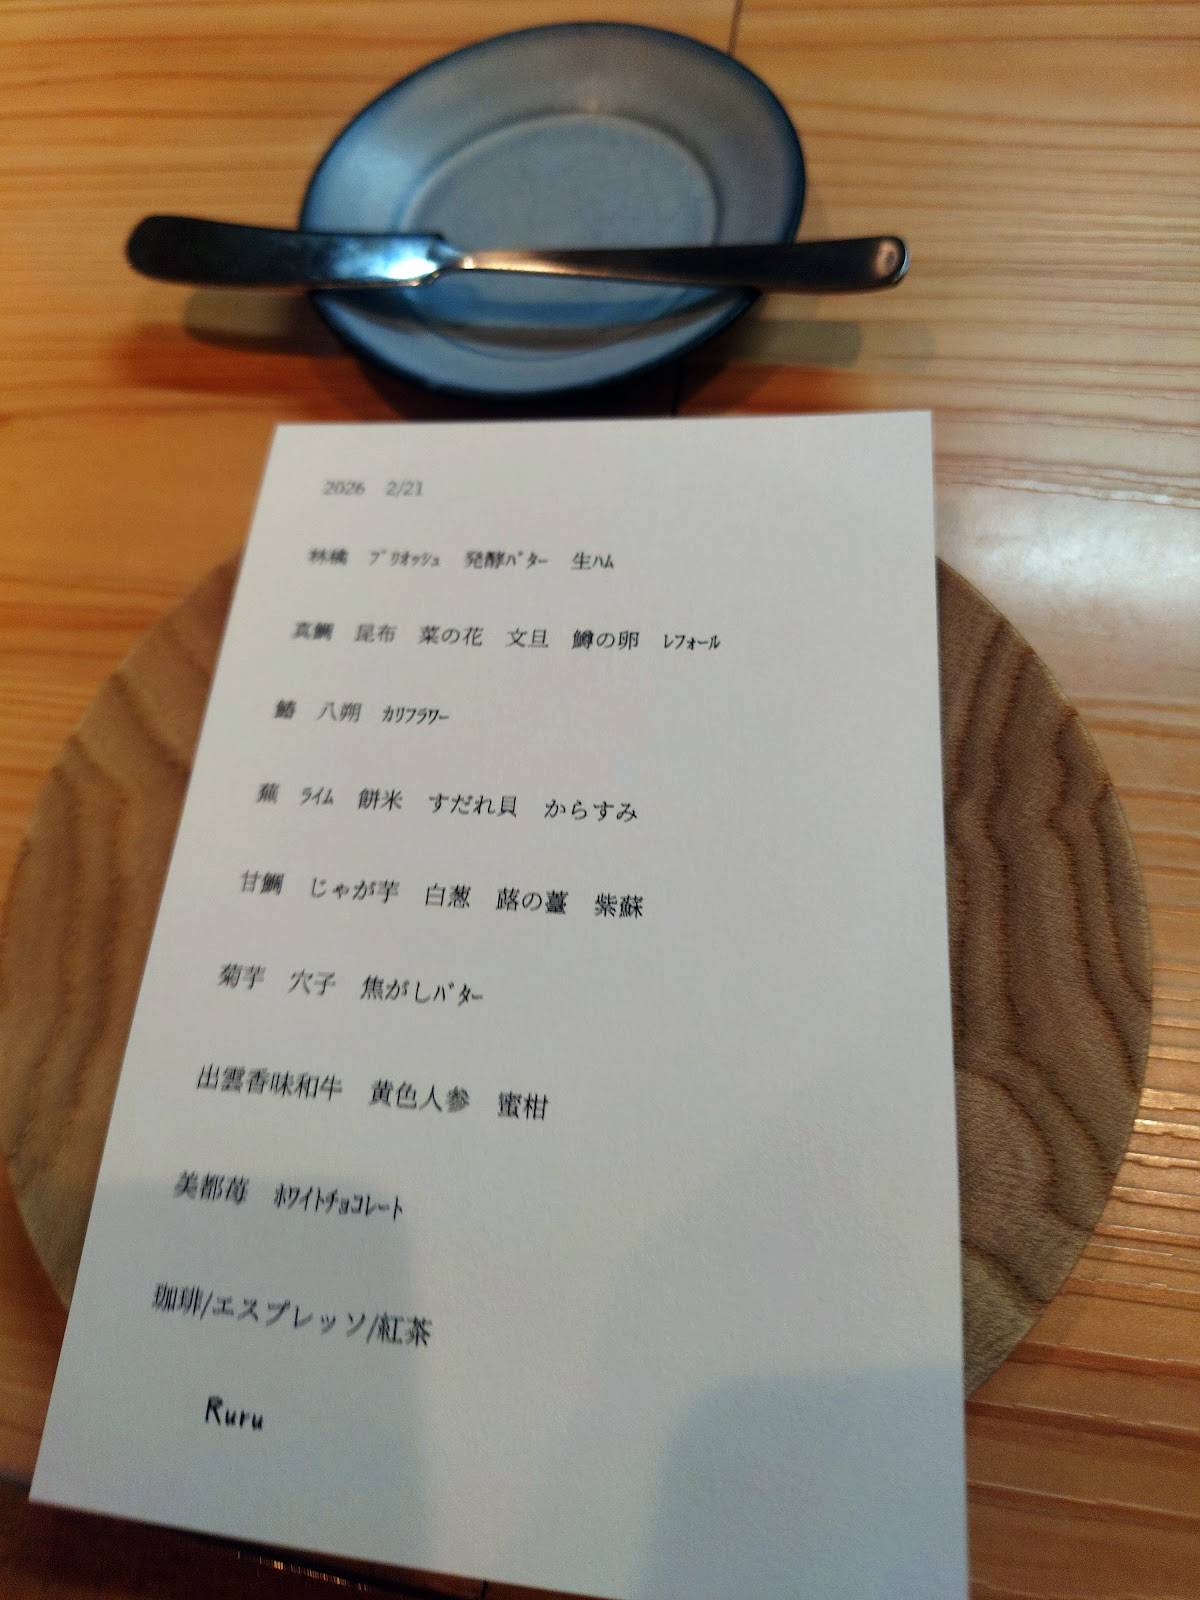 2026 2/21
林檎 ﾌﾞﾘｵｯｼｭ 発酵ﾊﾞﾀｰ 生ﾊﾑ
真鯛 昆布 菜の花 文旦 鱒の卵 ﾚﾌｫｰﾙ
鰆 八朔 ｶﾘﾌﾗﾜｰ
蕪 ﾗｲﾑ 餅米 すだれ貝 からすみ
甘鯛 じゃが芋 白葱 蕗の薹 紫蘇
菊芋 穴子 焦がしﾊﾞﾀｰ
出雲香味和牛 黄色人参 蜜柑
美都苺 ﾎﾜｲﾄﾁｮｺﾚｰﾄ
珈琲/エスプレッソ/紅茶
Ruru